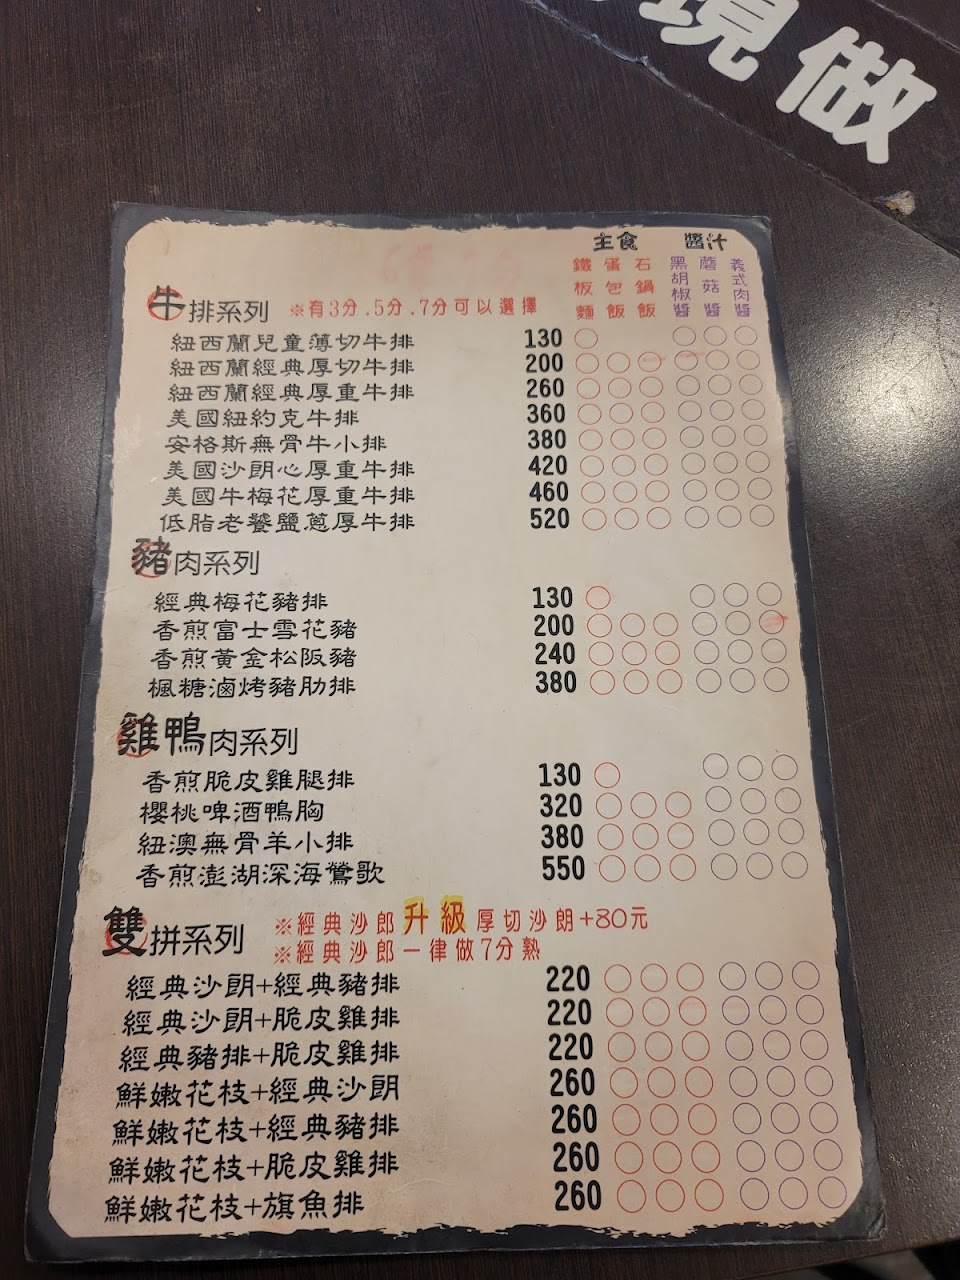 現做
主食 醬汁
鐵板麵 蛋包飯 石鍋飯 黑胡椒醬 蘑菇醬 義式肉醬
牛排系列 ※有3分.5分.7分可以選擇
紐西蘭兒童薄切牛排 130
紐西蘭經典厚切牛排 200
紐西蘭經典厚重牛排 260
美國紐約克牛排 360
安格斯無骨牛小排 380
美國沙朗心厚重牛排 420
美國牛梅花厚重牛排 460
低脂老饕鹽蔥厚牛排 520
豬肉系列
經典梅花豬排 130
香煎富士雪花豬 200
香煎黃金松阪豬 240
楓糖滷烤豬肋排 380
雞鴨肉系列
香煎脆皮雞腿排 130
櫻桃啤酒鴨胸 320
紐澳無骨羊小排 380
香煎澎湖深海鶯歌 550
雙拼系列 ※經典沙郎升級厚切沙朗+80元
※經典沙郎一律做7分熟
經典沙朗+經典豬排 220
經典沙朗+脆皮雞排 220
經典豬排+脆皮雞排 220
鮮嫩花枝+經典沙朗 260
鮮嫩花枝+經典豬排 260
鮮嫩花枝+脆皮雞排 260
鮮嫩花枝+旗魚排 260